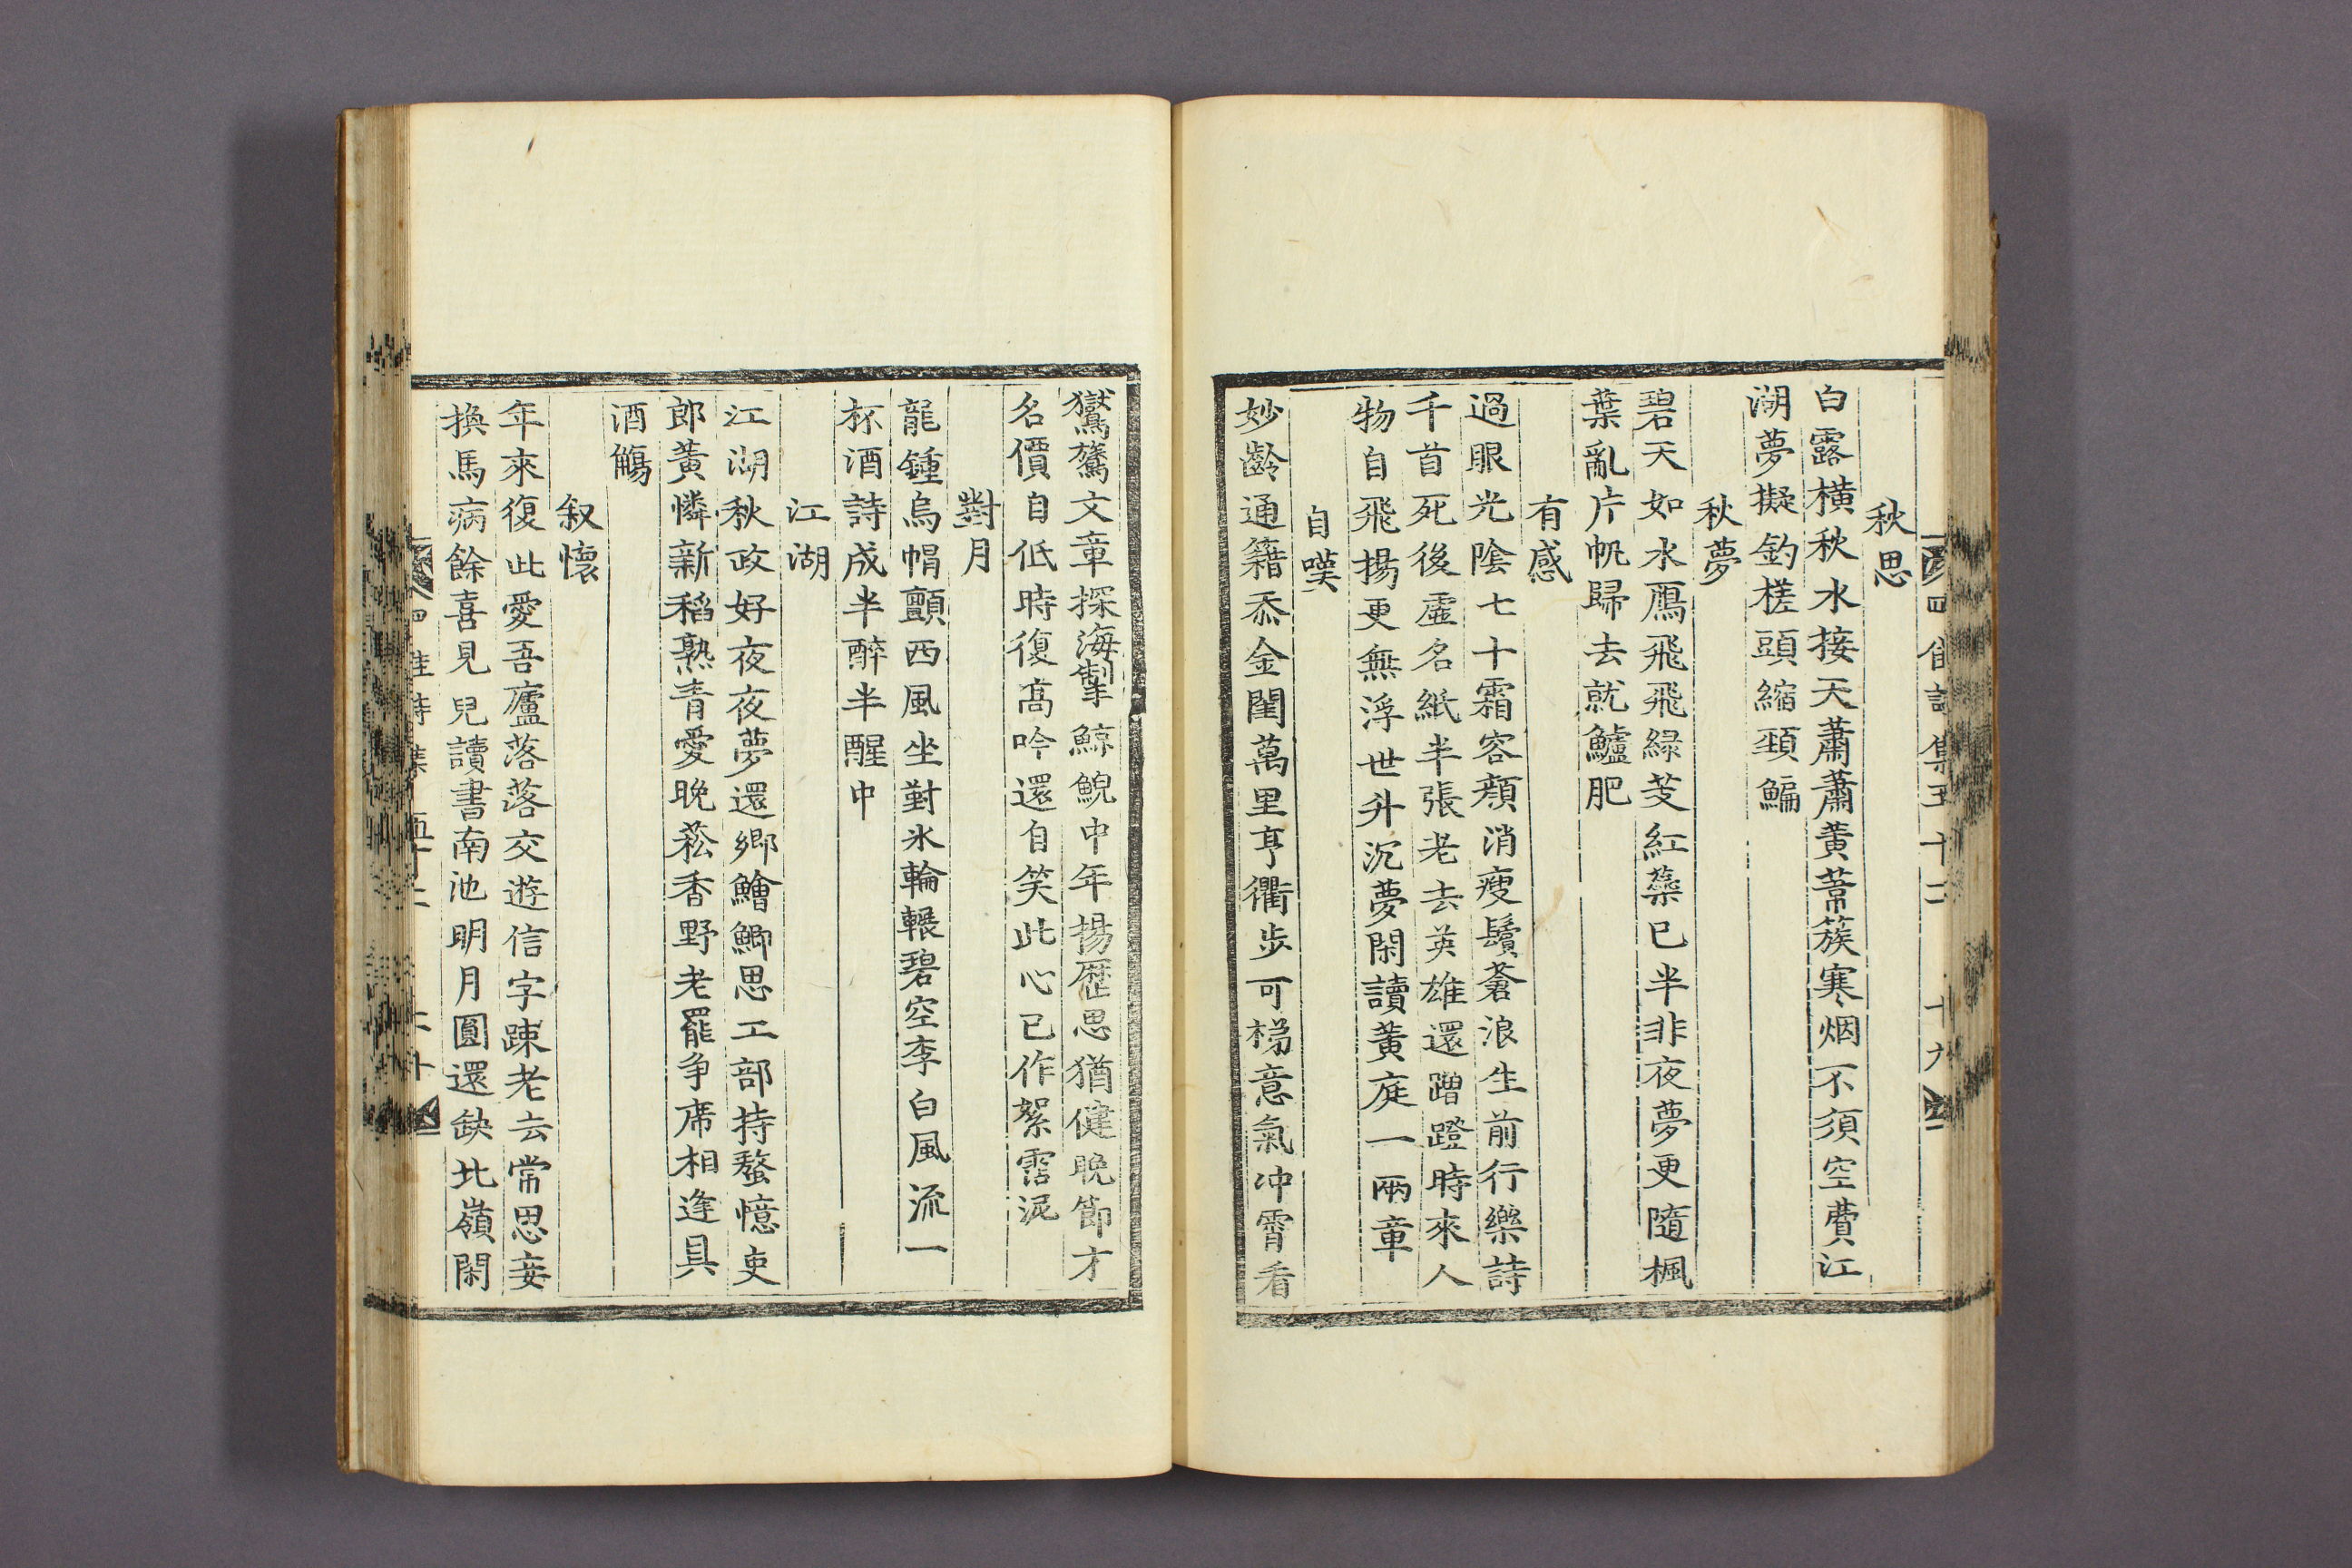 秋思
白露橫秋水接天蕭蕭黃葦簇寒烟不須空費江
湖夢擬釣槎頭縮頚鯿
秋夢
碧天如水鴈飛飛綠芰紅蕖已半非夜夢更隨楓
葉亂片帆歸去就鱸肥
有感
過眼光陰七十霜容顔消瘦鬢蒼浪生前行樂詩
千首死後虛名紙半張老去英雄還蹭蹬時來人
物自飛揚更無浮世升沉夢閑讀黃庭一兩章
自嘆
妙齡通籍忝金閨萬里亨衢步可梯意氣冲霄看
鸑鷟文章探海掣鯨鯢中年揚歷思猶健晚節才
名價自低時復高吟還自笑此心已作絮霑泥
對月
龍鍾烏帽顫西風坐對氷輪輾碧空李白風流一
杯酒詩成半醉半醒中
江湖
江湖秋政好夜夜夢還鄉鱠鯽思工部持螯憶吏
郎黃憐新稻熟青愛晚菘香野老罷爭席相逢具
酒觴
叙懷
年來復此愛吾廬落落交遊信字踈老去常思妾
換馬病餘喜見兒讀書南池明月圓還缺北嶺閑